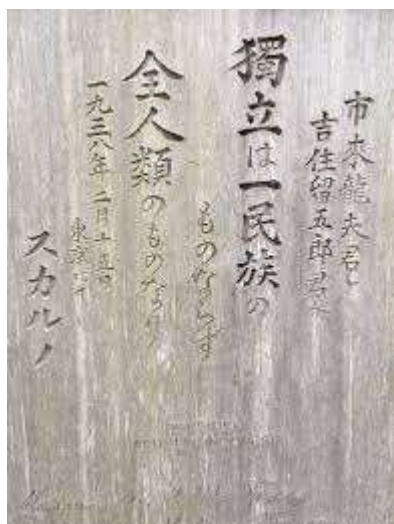 市来龍夫君と
吉住留五郎君へ
獨立は一民族の
ものならず
全人類のものなり
一九五八年二月十五日
東京にて
スカルノ